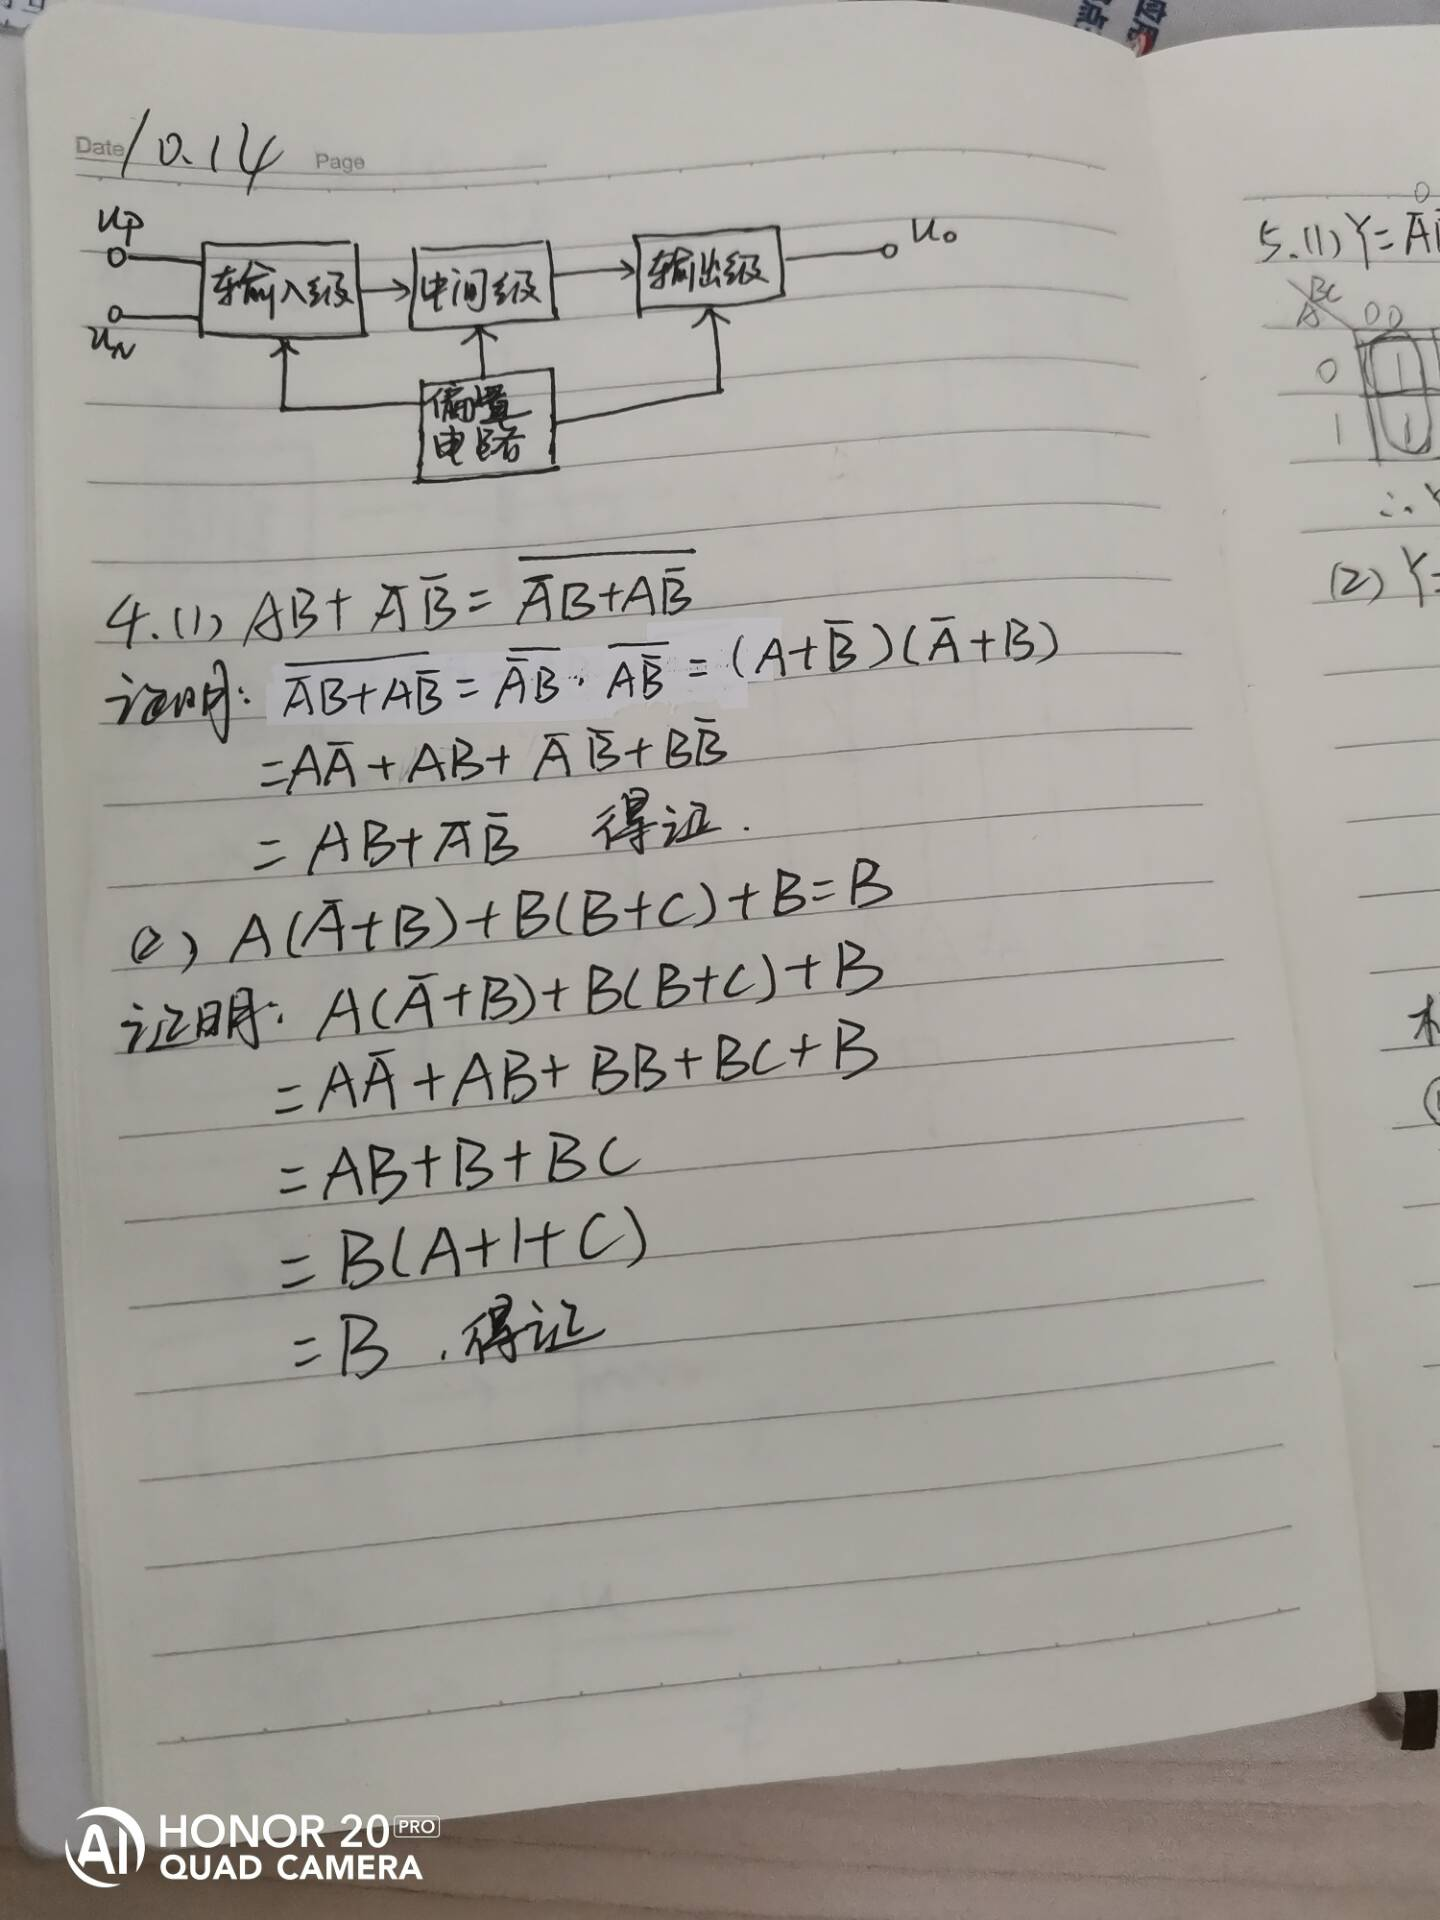 Date 10.14 Page
uP
uN
输入级 中间级 输出级 uo
偏置
电路
4.(1) AB+A̅ B̅ = \overline{A̅B+AB̅}
证明: \overline{A̅B+AB̅} = \overline{A̅B}·\overline{AB̅} = (A+B̅)(A̅+B)
=AA̅+AB+A̅ B̅+BB̅
=AB+A̅B̅ 得证.
(2) A(A̅+B)+B(B+C)+B=B
证明: A(A̅+B)+B(B+C)+B
=AA̅+AB+BB+BC+B
=AB+B+BC
=B(A+1+C)
=B .得证
5.(1) Y=
BC
A 00
0 1
1 1
∴Y
(2) Y=
AI HONOR 20 PRO
QUAD CAMERA